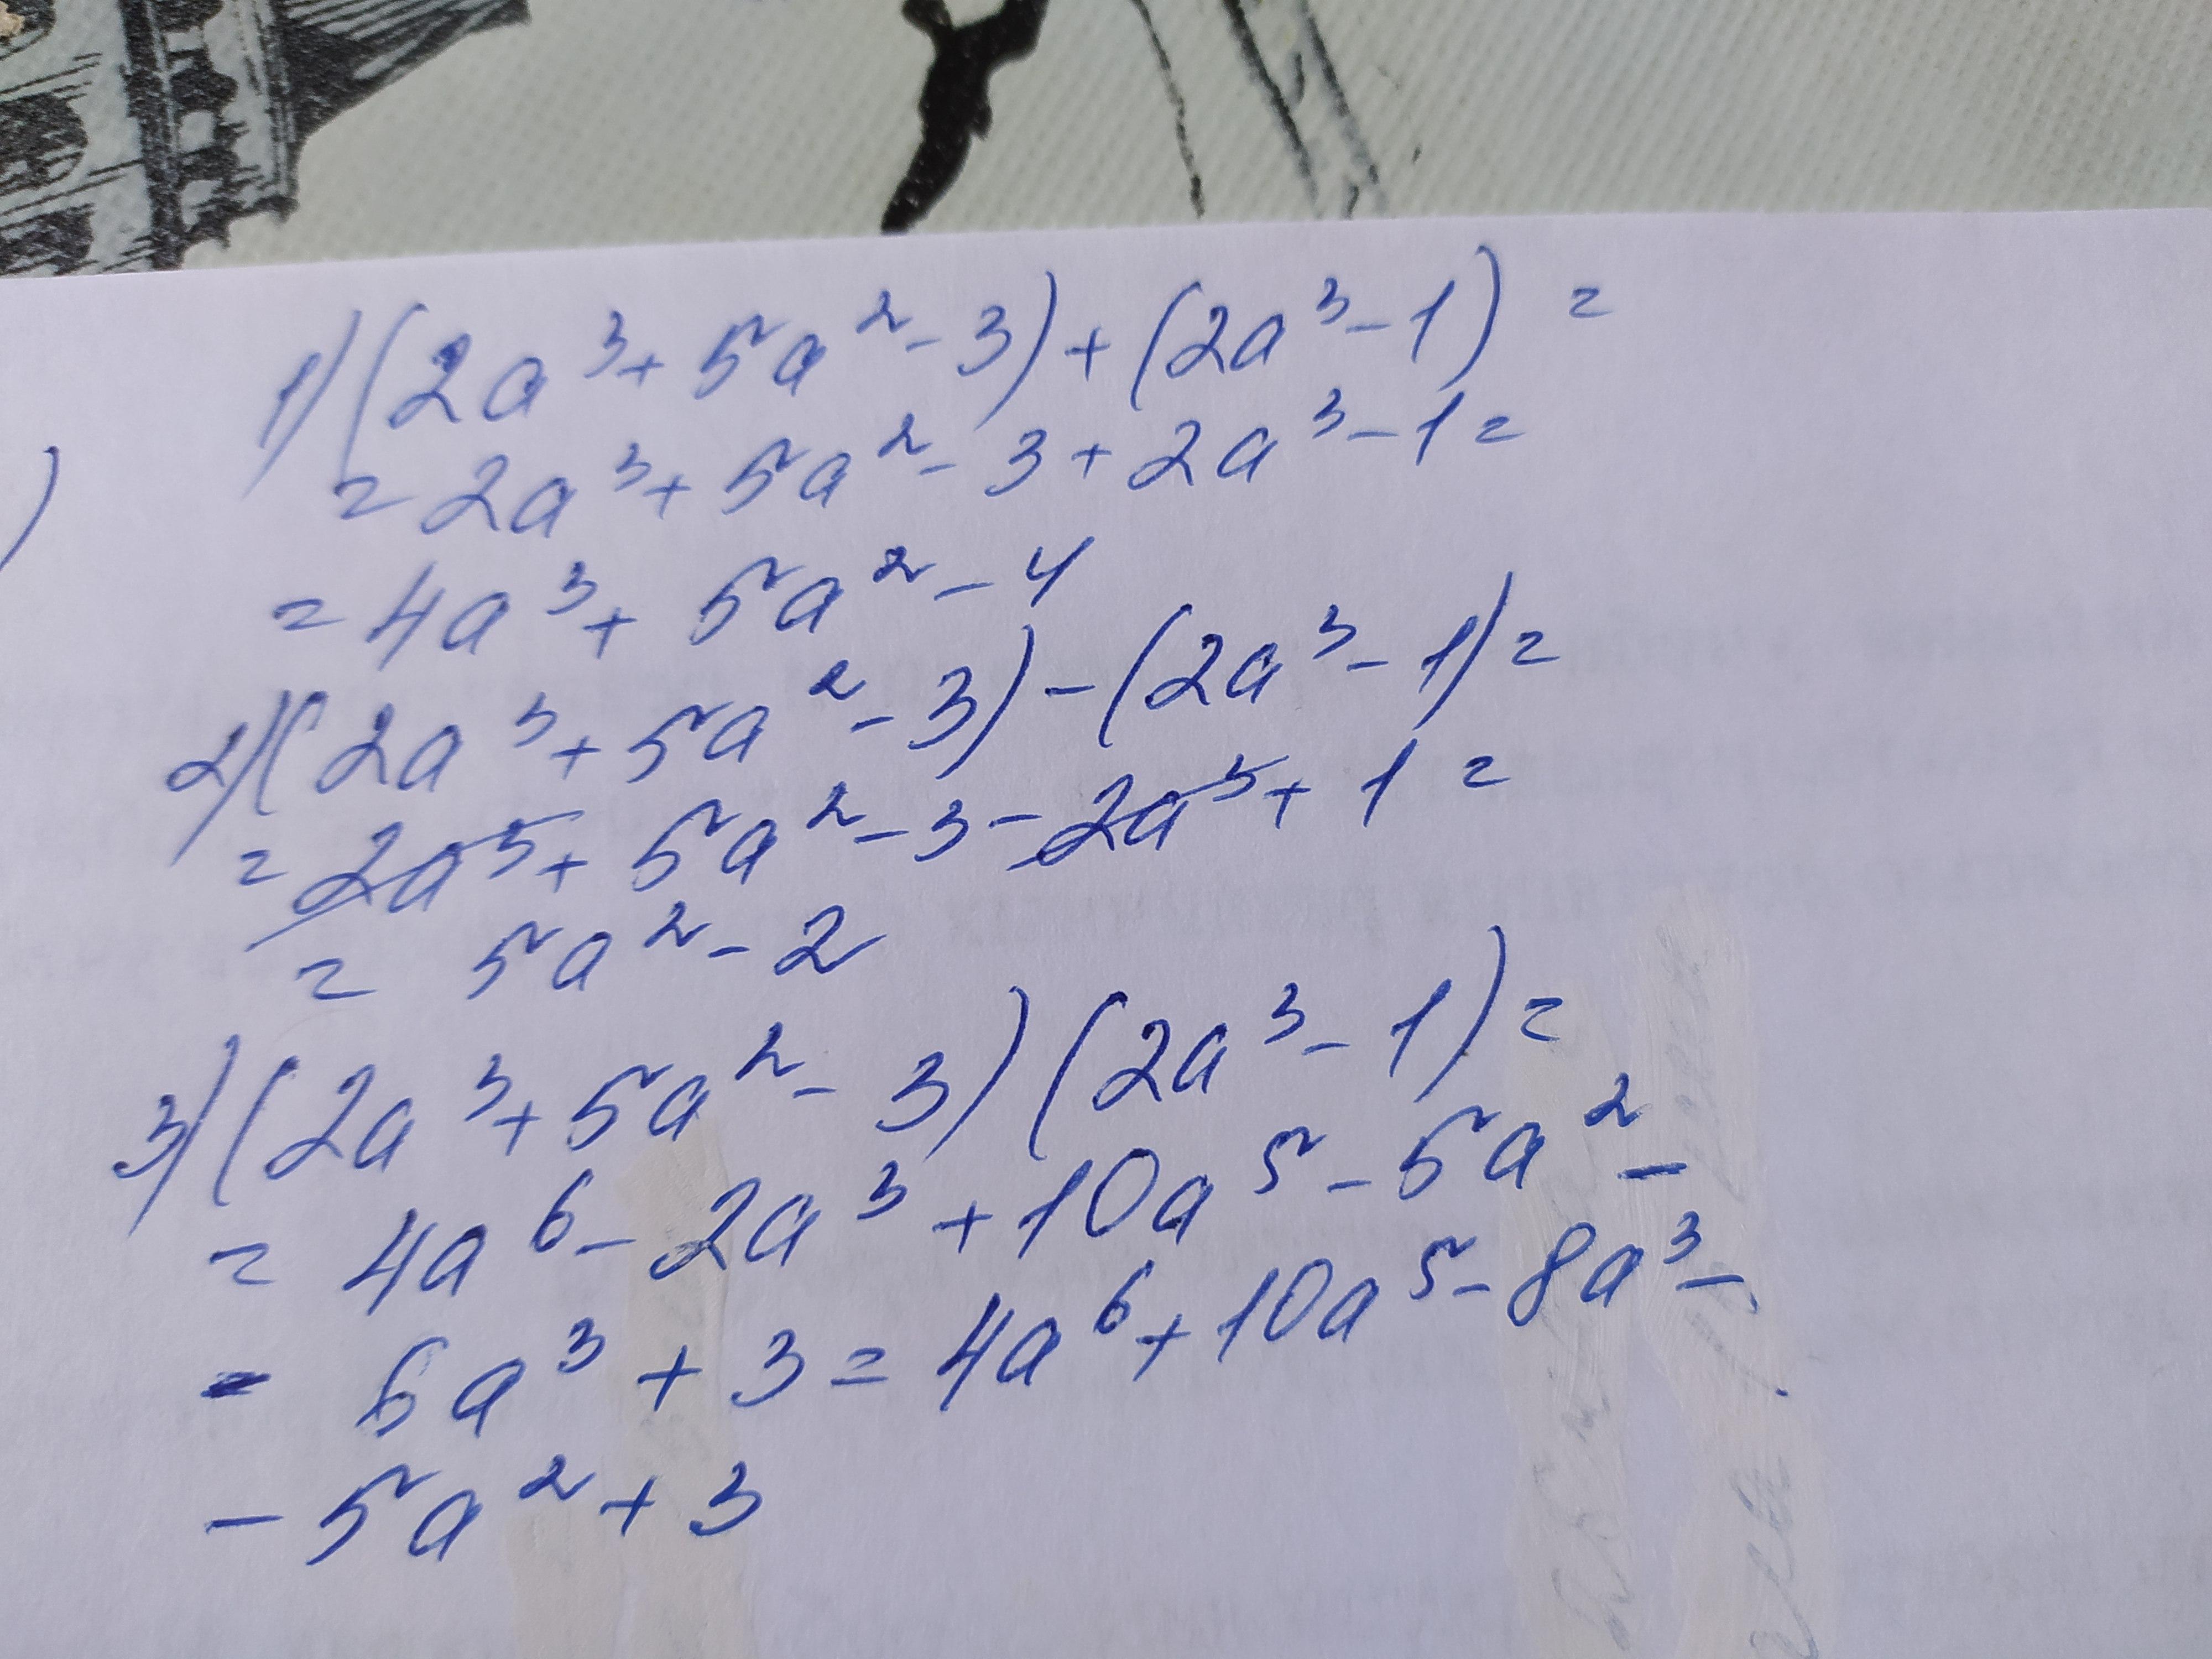 1) (2a³ + 5a² - 3) + (2a³ - 1) =
= 2a³ + 5a² - 3 + 2a³ - 1 =
= 4a³ + 5a² - 4
2) (2a³ + 5a² - 3) - (2a³ - 1) =
= 2a³ + 5a² - 3 - 2a³ + 1 =
= 5a² - 2
3) (2a³ + 5a² - 3) (2a³ - 1) =
= 4a⁶ - 2a³ + 10a⁵ - 5a² -
- 6a³ + 3 = 4a⁶ + 10a⁵ - 8a³ -
- 5a² + 3